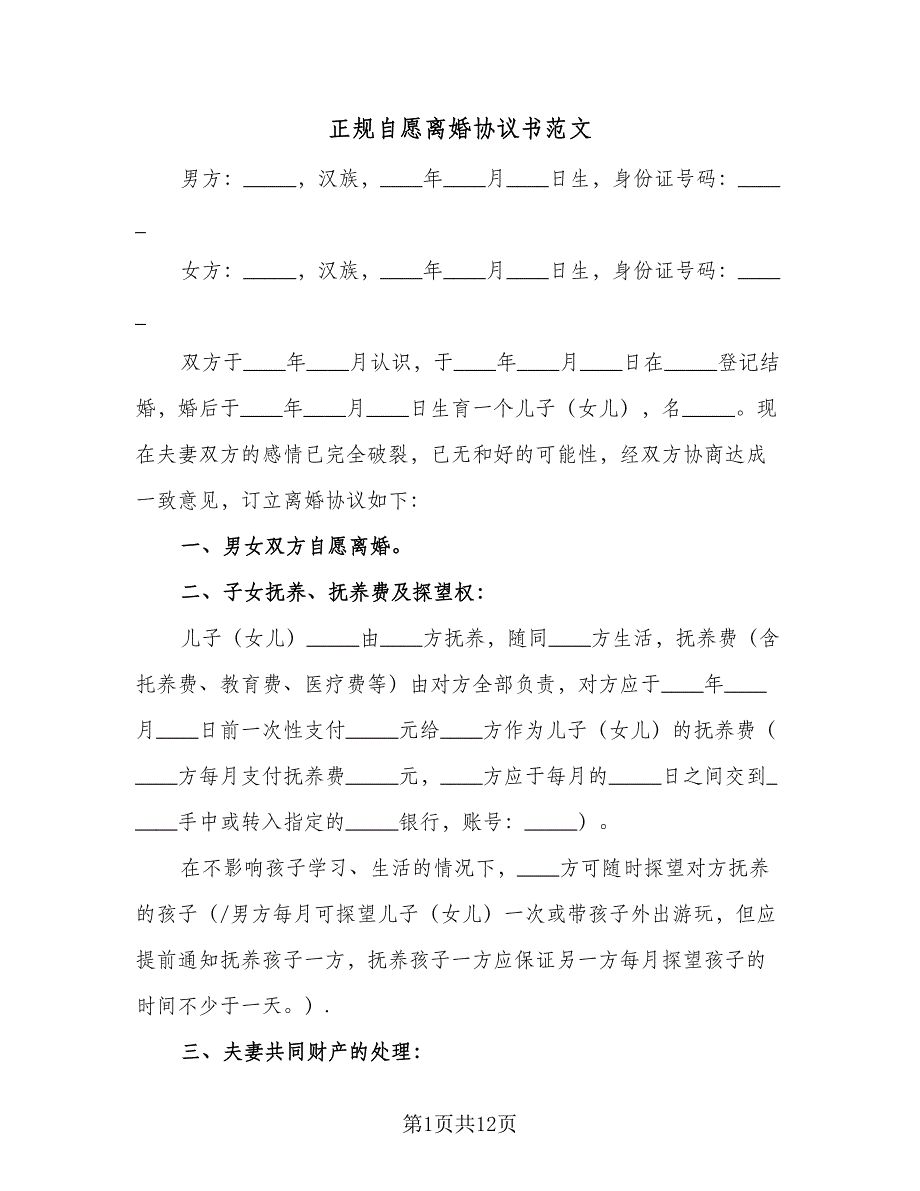 正规自愿离婚协议书范文
男方：_____，汉族，____年____月____日生，身份证号码：____
_
女方：_____，汉族，____年____月____日生，身份证号码：____
_
双方于____年____月认识，于____年____月____日在_____登记结
婚，婚后于____年____月____日生育一个儿子（女儿），名_____。现
在夫妻双方的感情已完全破裂，已无和好的可能性，经双方协商达成
一致意见，订立离婚协议如下：
一、男女双方自愿离婚。
二、子女抚养、抚养费及探望权：
儿子（女儿）_____由____方抚养，随同____方生活，抚养费（含
托养费、教育费、医疗费等）由对方全部负责，对方应于____年____
月____日前一次性支付_____元给____方作为儿子（女儿）的抚养费（
____方每月支付抚养费_____元，____方应于每月的_____日之间交到_
____手中或转入指定的_____银行，账号：_____）。
在不影响孩子学习、生活的情况下，____方可随时探望对方抚养
的孩子（/男方每月可探望儿子（女儿）一次或带孩子外出游玩，但应
提前通知抚养孩子一方，抚养孩子一方应保证另一方每月探望孩子的
时间不少于一天。）.
三、夫妻共同财产的处理：
第1页共12页